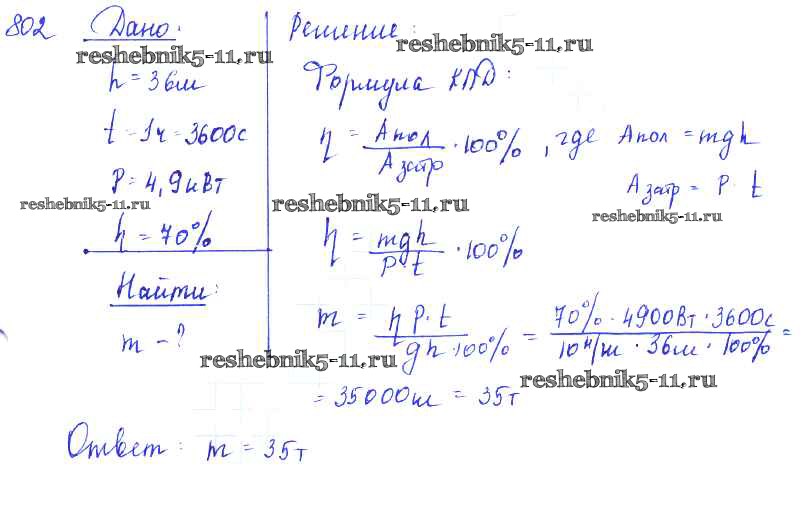 802 Дано:
reshebnik5-11.ru
h = 36м
t = 1ч = 3600с
P = 4,9кВт
reshebnik5-11.ru
η = 70%
Найти:
m - ?
Решение:
reshebnik5-11.ru
Формула КПД:
η = Aпол / Aзатр · 100%, где Aпол = mgh
Aзатр = P · t
reshebnik5-11.ru
reshebnik5-11.ru
η = mgh / P · t · 100%
m = η P · t / gh · 100% = 70% · 4900Вт · 3600с / 10 Н/кг · 36м · 100% =
reshebnik5-11.ru
reshebnik5-11.ru
= 35000кг = 35т
Ответ: m = 35т